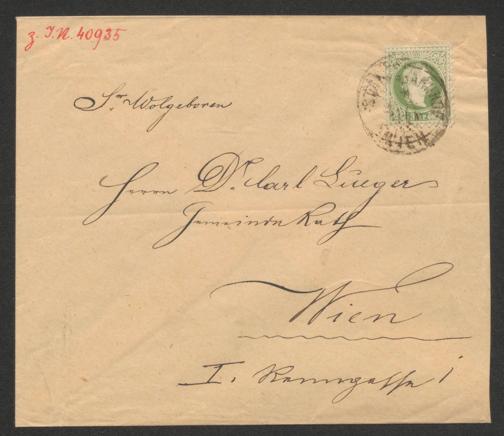 z. J.N. 40935
Sr Wolgeboren
Herrn Dr Carl Lueger
Gemeinde Rath
Wien
I. Renngasse 1
WIEN